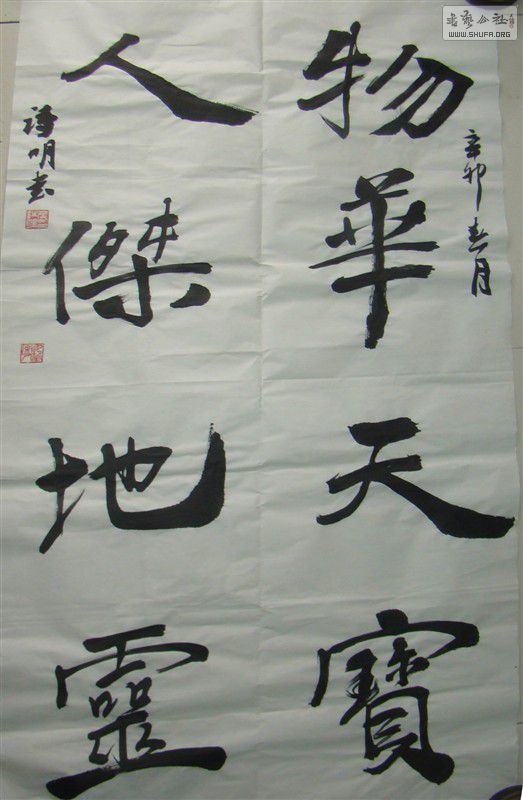 物華天寶
人傑地靈
辛卯春月
明書
书艺公社
WWW.SHUFA.ORG